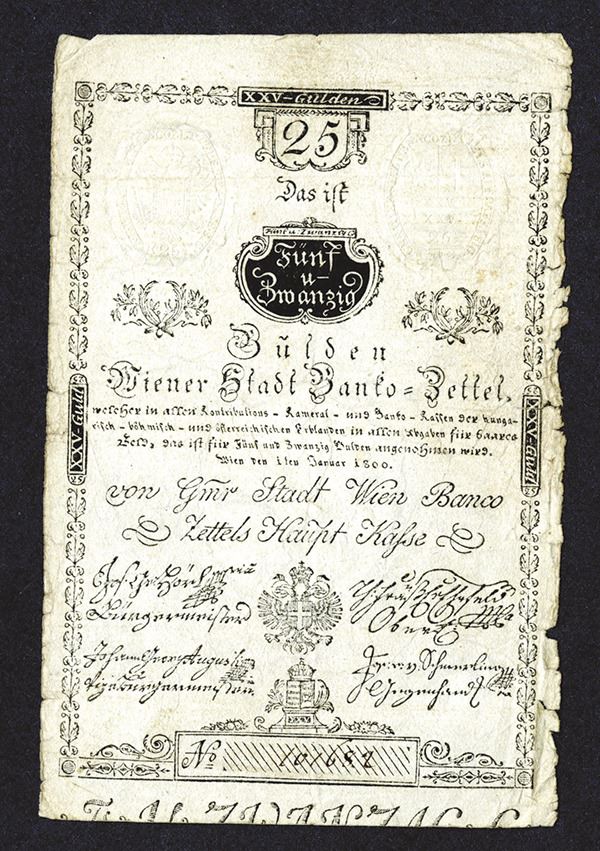 XXV-Gulden
25
Das ist
Fünf u. Zwanzig
Fünf
u-
Zwanzig
Gulden
Wiener Stadt Banko-Zettel,
welcher in allen Kontributions - Kameral - und Banko - Kassen der hunga-
risch - böhmisch - und österreichischen Erblanden in allen Abgaben für baares
Geld, das ist für Fünf und Zwanzig Gulden angenohmen wird.
Wien den 1ten Januar 1800.
XXV-Guld
XXV-Guld
von Gmr Stadt Wien Banco
Zettels Haupt Kasse
Bürgermeister
Johann Georg Augusti
Vizebürgermeister
XXV
No 101682